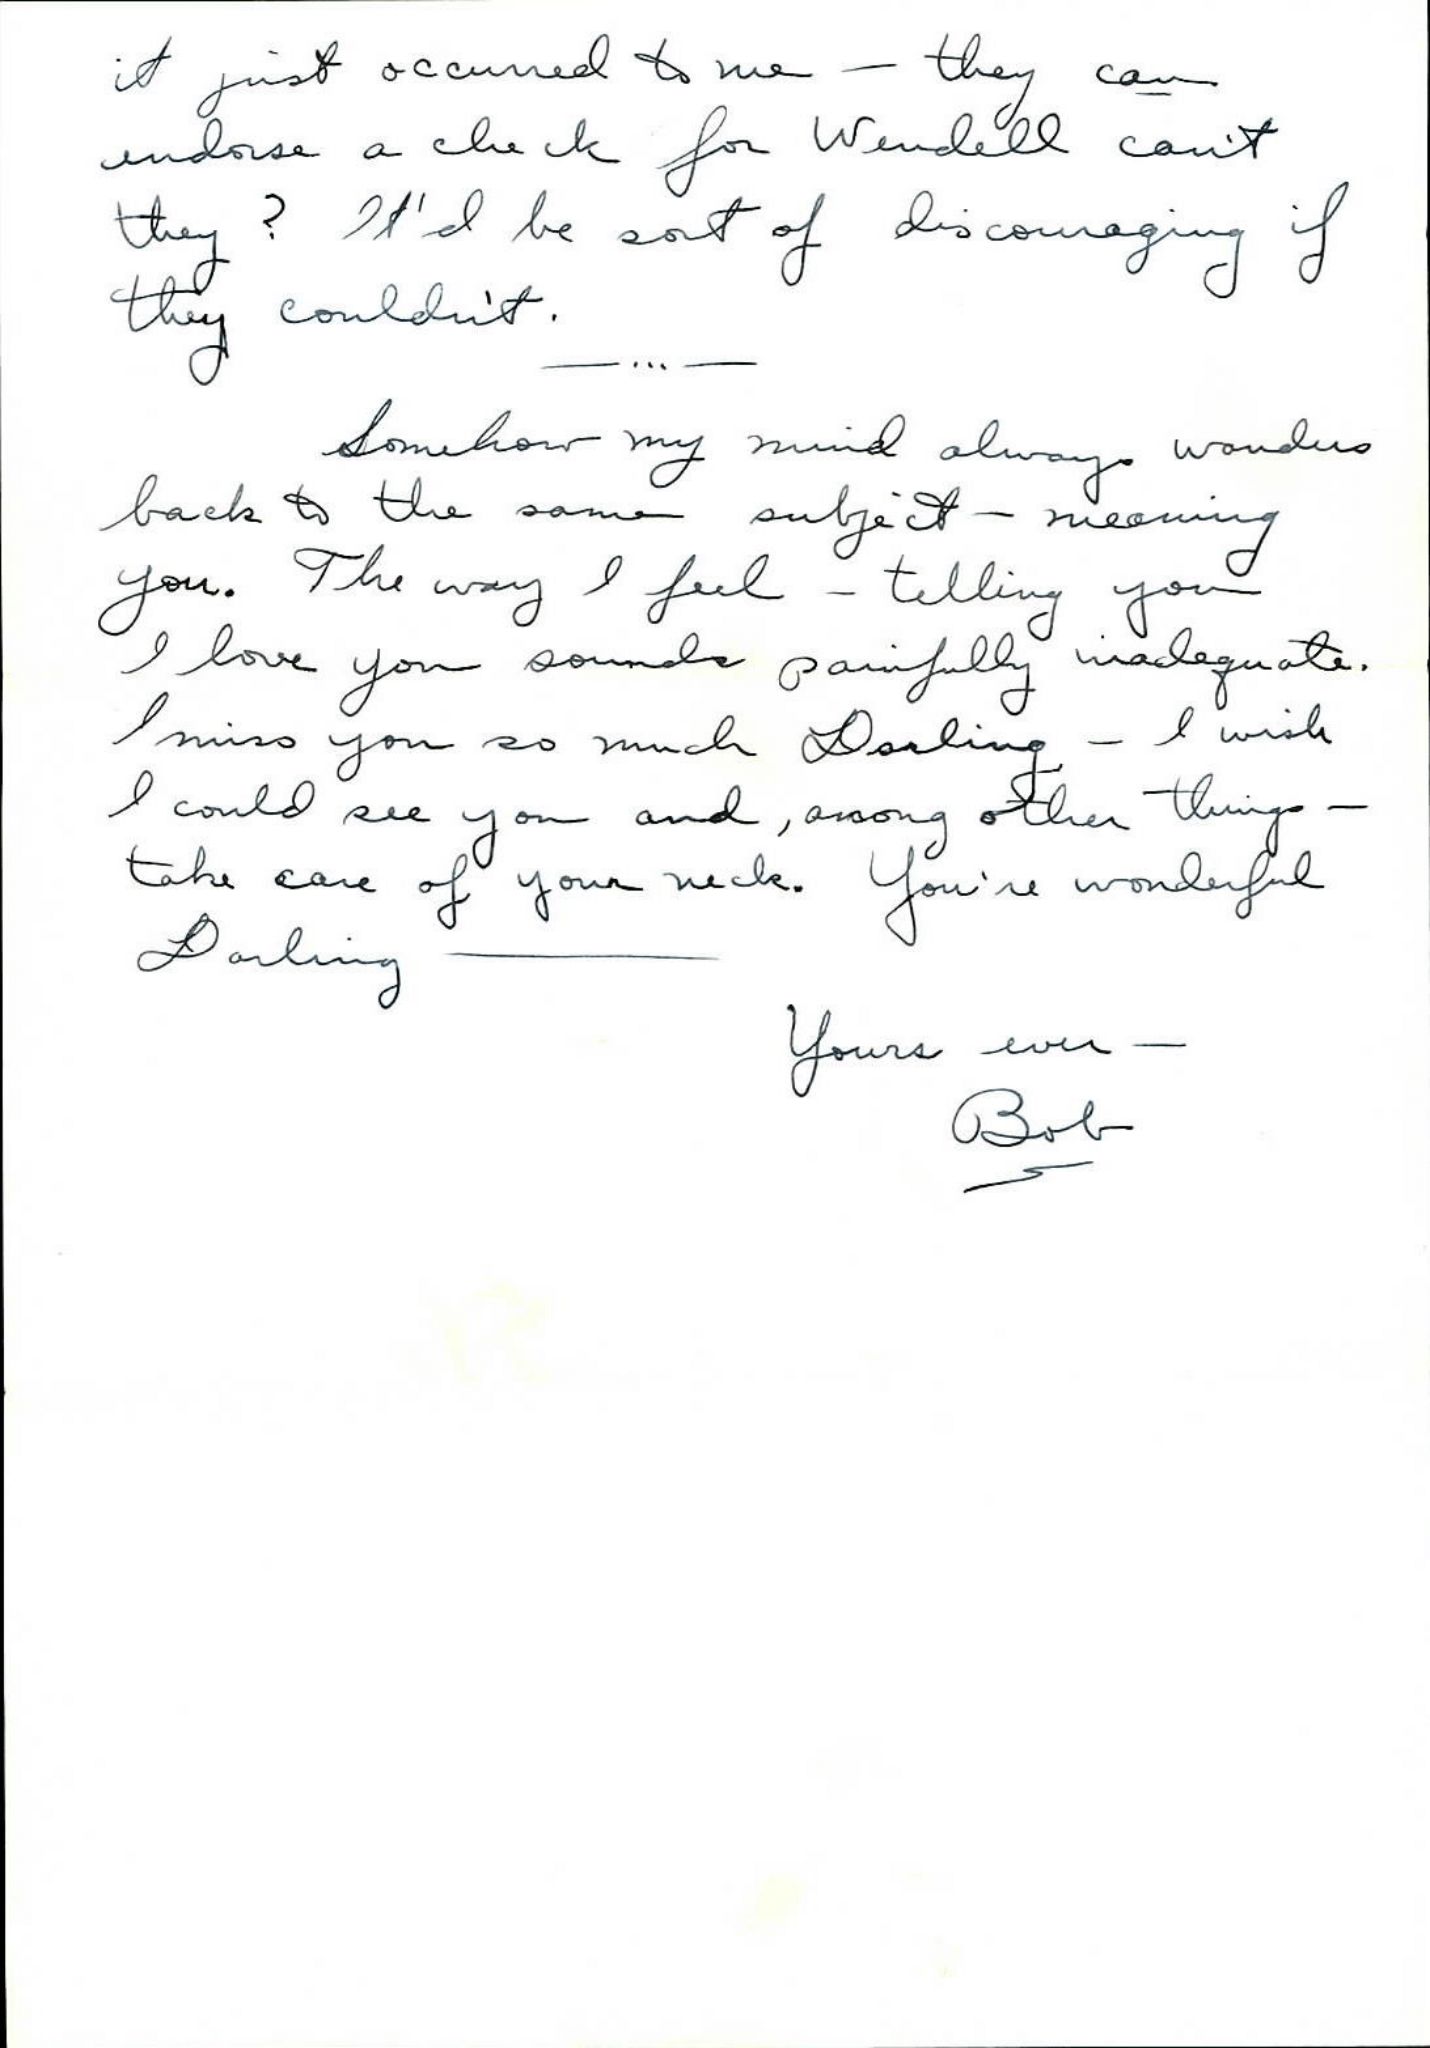 it just occurred to me — they can
endorse a check for Wendell can't
they? It'd be sort of discouraging if
they couldn't.
— ... —
Somehow my mind always wanders
back to the same subject — meaning
you. The way I feel — telling you
I love you sounds painfully inadequate.
I miss you so much Darling — I wish
I could see you and, among other things —
take care of your neck. You're wonderful
Darling ———
Yours ever —
Bob